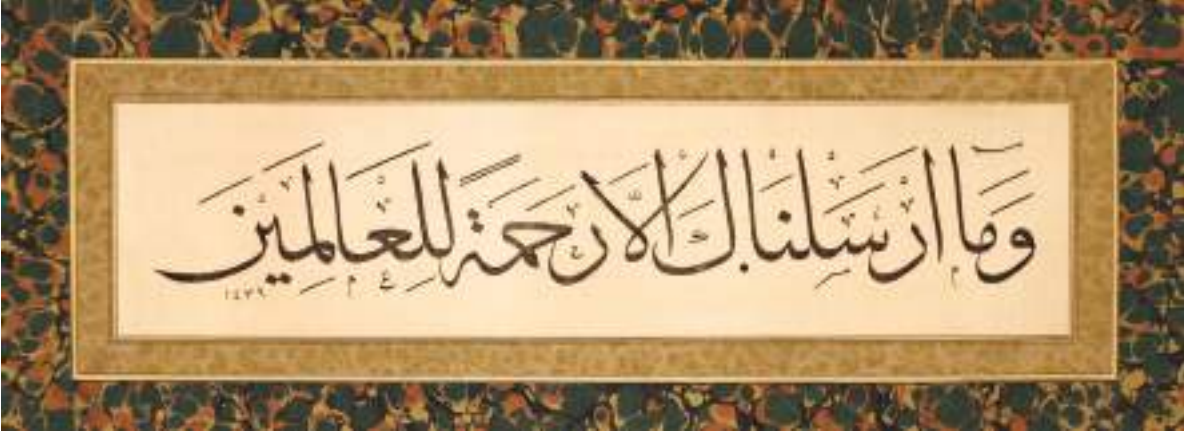 وَمَا أَرْسَلْنَاكَ إِلَّا رَحْمَةً لِلْعَالَمِينَ
١٤٣٩